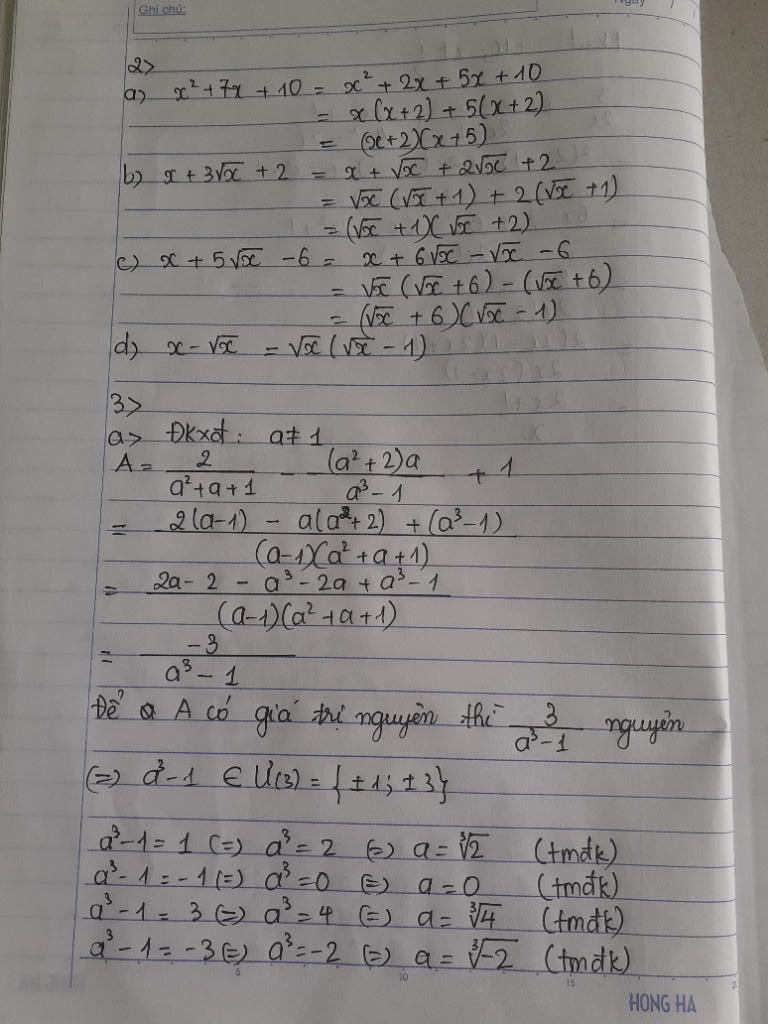 Ghi chú:
Ngày / /
2>
a) x² + 7x + 10 = x² + 2x + 5x + 10
= x(x+2) + 5(x+2)
= (x+2)(x+5)
b) x + 3√x + 2 = x + √x + 2√x + 2
= √x (√x + 1) + 2(√x + 1)
= (√x + 1)(√x + 2)
c) x + 5√x - 6 = x + 6√x - √x - 6
= √x (√x + 6) - (√x + 6)
= (√x + 6)(√x - 1)
d) x - √x = √x (√x - 1)
3>
a> ĐKxđ: a ≠ 1
A = 2/(a² + a + 1) - (a² + 2)a/(a³ - 1) + 1
= (2(a-1) - a(a²+2) + (a³-1))/((a-1)(a² + a + 1))
= (2a - 2 - a³ - 2a + a³ - 1)/((a-1)(a² + a + 1))
= -3/(a³ - 1)
Để a A có giá trị nguyên thì 3/(a³ - 1) nguyên
(=) a³ - 1 ∈ Ư(3) = {±1; ±3}
a³ - 1 = 1 (=) a³ = 2 (=) a = ∛2 (tmđk)
a³ - 1 = -1 (=) a³ = 0 (=) a = 0 (tmđk)
a³ - 1 = 3 (=) a³ = 4 (=) a = ∛4 (tmđk)
a³ - 1 = -3 (=) a³ = -2 (=) a = ∛-2 (tmđk)
5 10 15
HONG HA